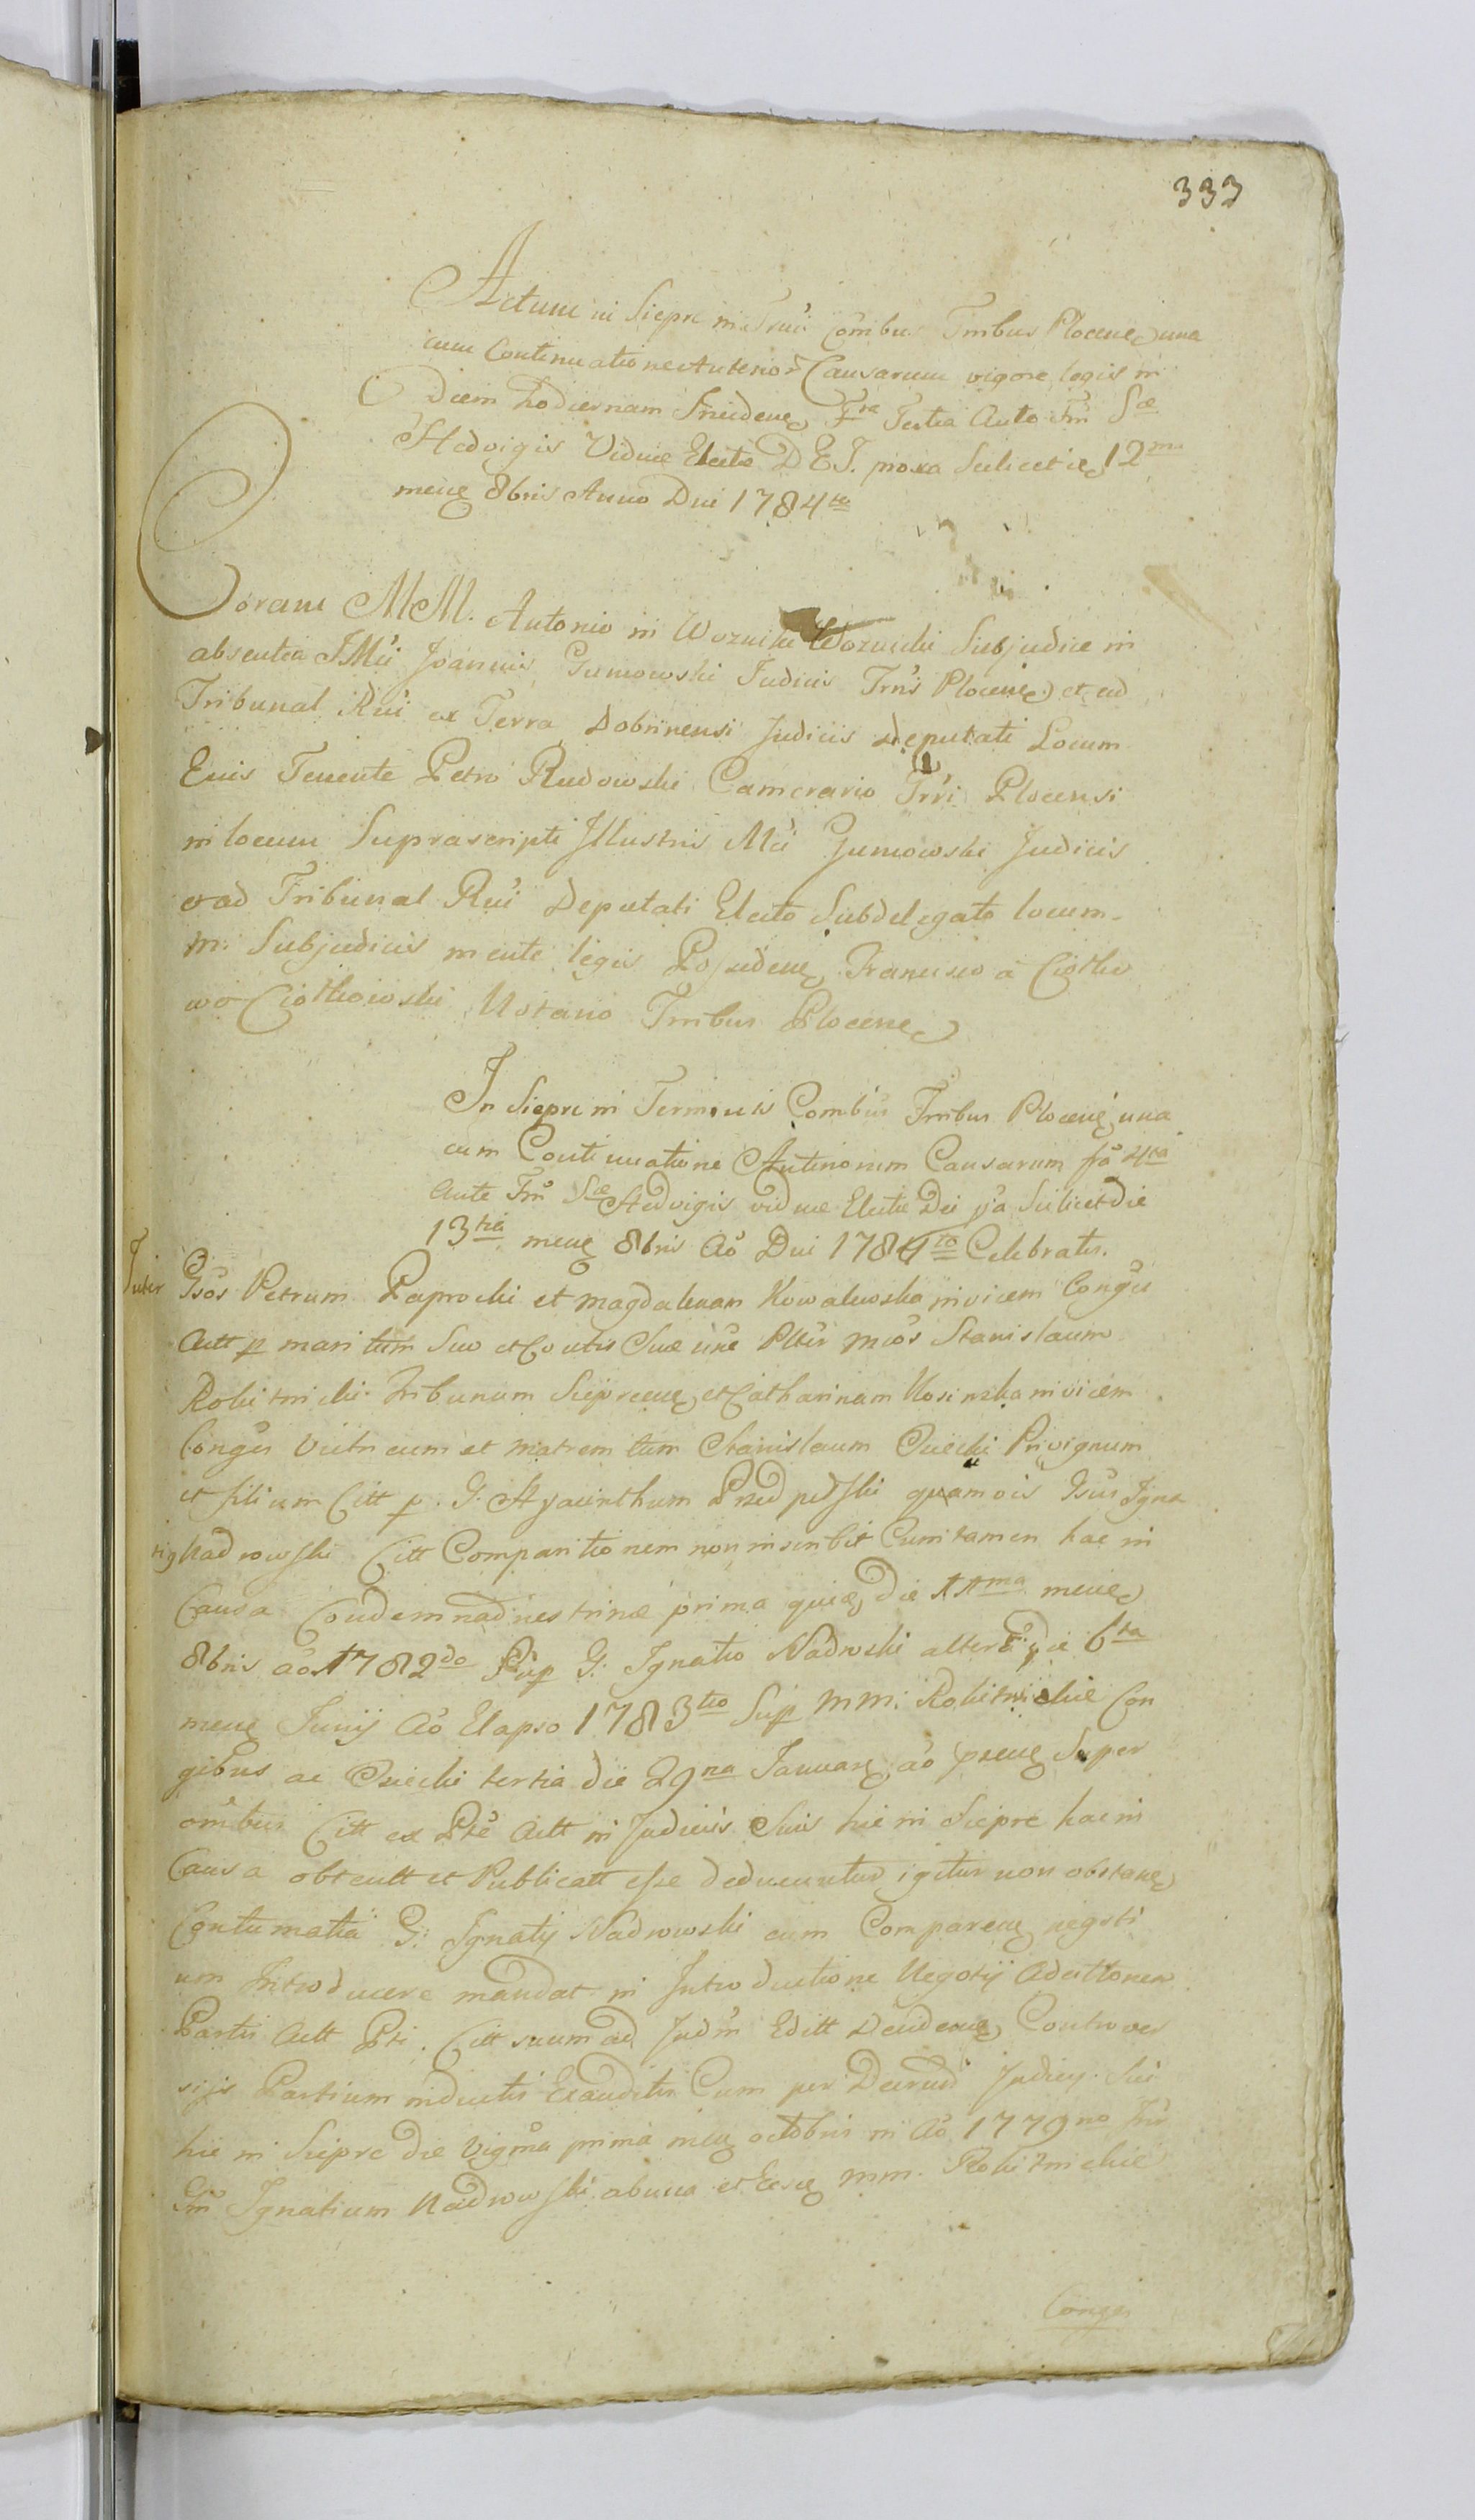 333
Actum in Siepre in Trnis Combus Trribus Plocens una
cum Continuatione Anterior Causarum vigore legis in
Diem hodiernam Inciden Fra Tertia Ante Fm Sæ
Hedvigis Viduæ Electæ D E I. proxa Scilicet die 12ma
mens 8bris Anno Dni 1784to
Coram MM. Antonio in Woznicki Subjudice in
absentia IMci Joannis Gumowski Judicis Trris Plocens et ad
Tribunal Rni ex Terra Dobrinensi Judiciis Deputati Locum
Tenente Petro Rudowski Camerario Trri Plocensi
in locum Suprascripti Illustris Mci Gumowski Judicis
et ad Tribunal Rni Deputati Electo Subdelegato locum
M. Subjudicis mente legis Posiden Francisco a Ciołko
wo Ciołkowski Notario Trribus Plocens
In Siepre in Terminis Combus Trribus Plocens una
cum Continuatione Anteriorum Causarum fa 4ta
Ante Fm Sæ Hedvigis viduæ Electæ Dei pa Scilicet die
13tia mens 8bris Ao Dni 1784to Celebratis.
Inter Gsos Petrum Paprocki et Magdalenam Kowalewska invicem Congs
Actt p maritum Suo et Conts Suæ Mcos Stanislaum
Rokitnicki Tribunum Sieprcens et Catharinam Kosinska invicem
Conges Vitricum et Matrem tum Stanislaum Osiecki Privignum
et filium Citt p. G. Hyacinthum Przedpełski quamvis Gsus Igna
tius Nadrowski Citt Comparitionem non inscribit Cum tamen hac in
Causa Condemnad nes trinæ prima die 11ma mens
8bris ao 1782do Sup G. Ignatio Nadroski altera die 6ta
mens Junij Ao Elapso 1783tio Sup MM. Rokitnickie Con
gibus ac Osiecki tertia die 29na Januar ao præns Super
omibus Citt ex Pte Actt in Judiciis Suis hic in Siepre hac in
Causa obtentt et Publicatt esse deducuntur igitur non obstane
Contumatia G. Ignatij Nadrowski cum Comparen negoti
um Introducere mandat in Introductione Negotij ad actionem
Partis Actt Pti. Citt suum ad Judm Editt Deciden Controver
sijs Partium inductis Exauditis Cum per Decretum Judicij Sui
hic in Siepre die vigma prima mens octobris in Ao 1779no Inr
Gm Ignatium Nadrowski ab una et MM. Rokitnickie
Conges